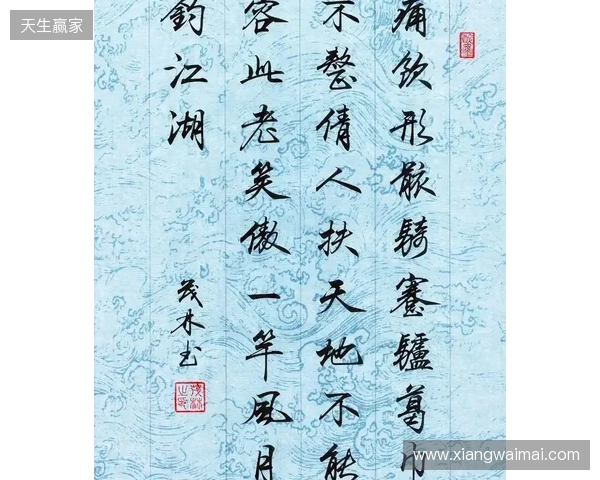 天生赢家
痛飲形骸騎蹇驢葛巾
不整倩人扶天地不能
容此老笑傲一竿風月
釣江湖
茂林书
www.xiangwaimai.com